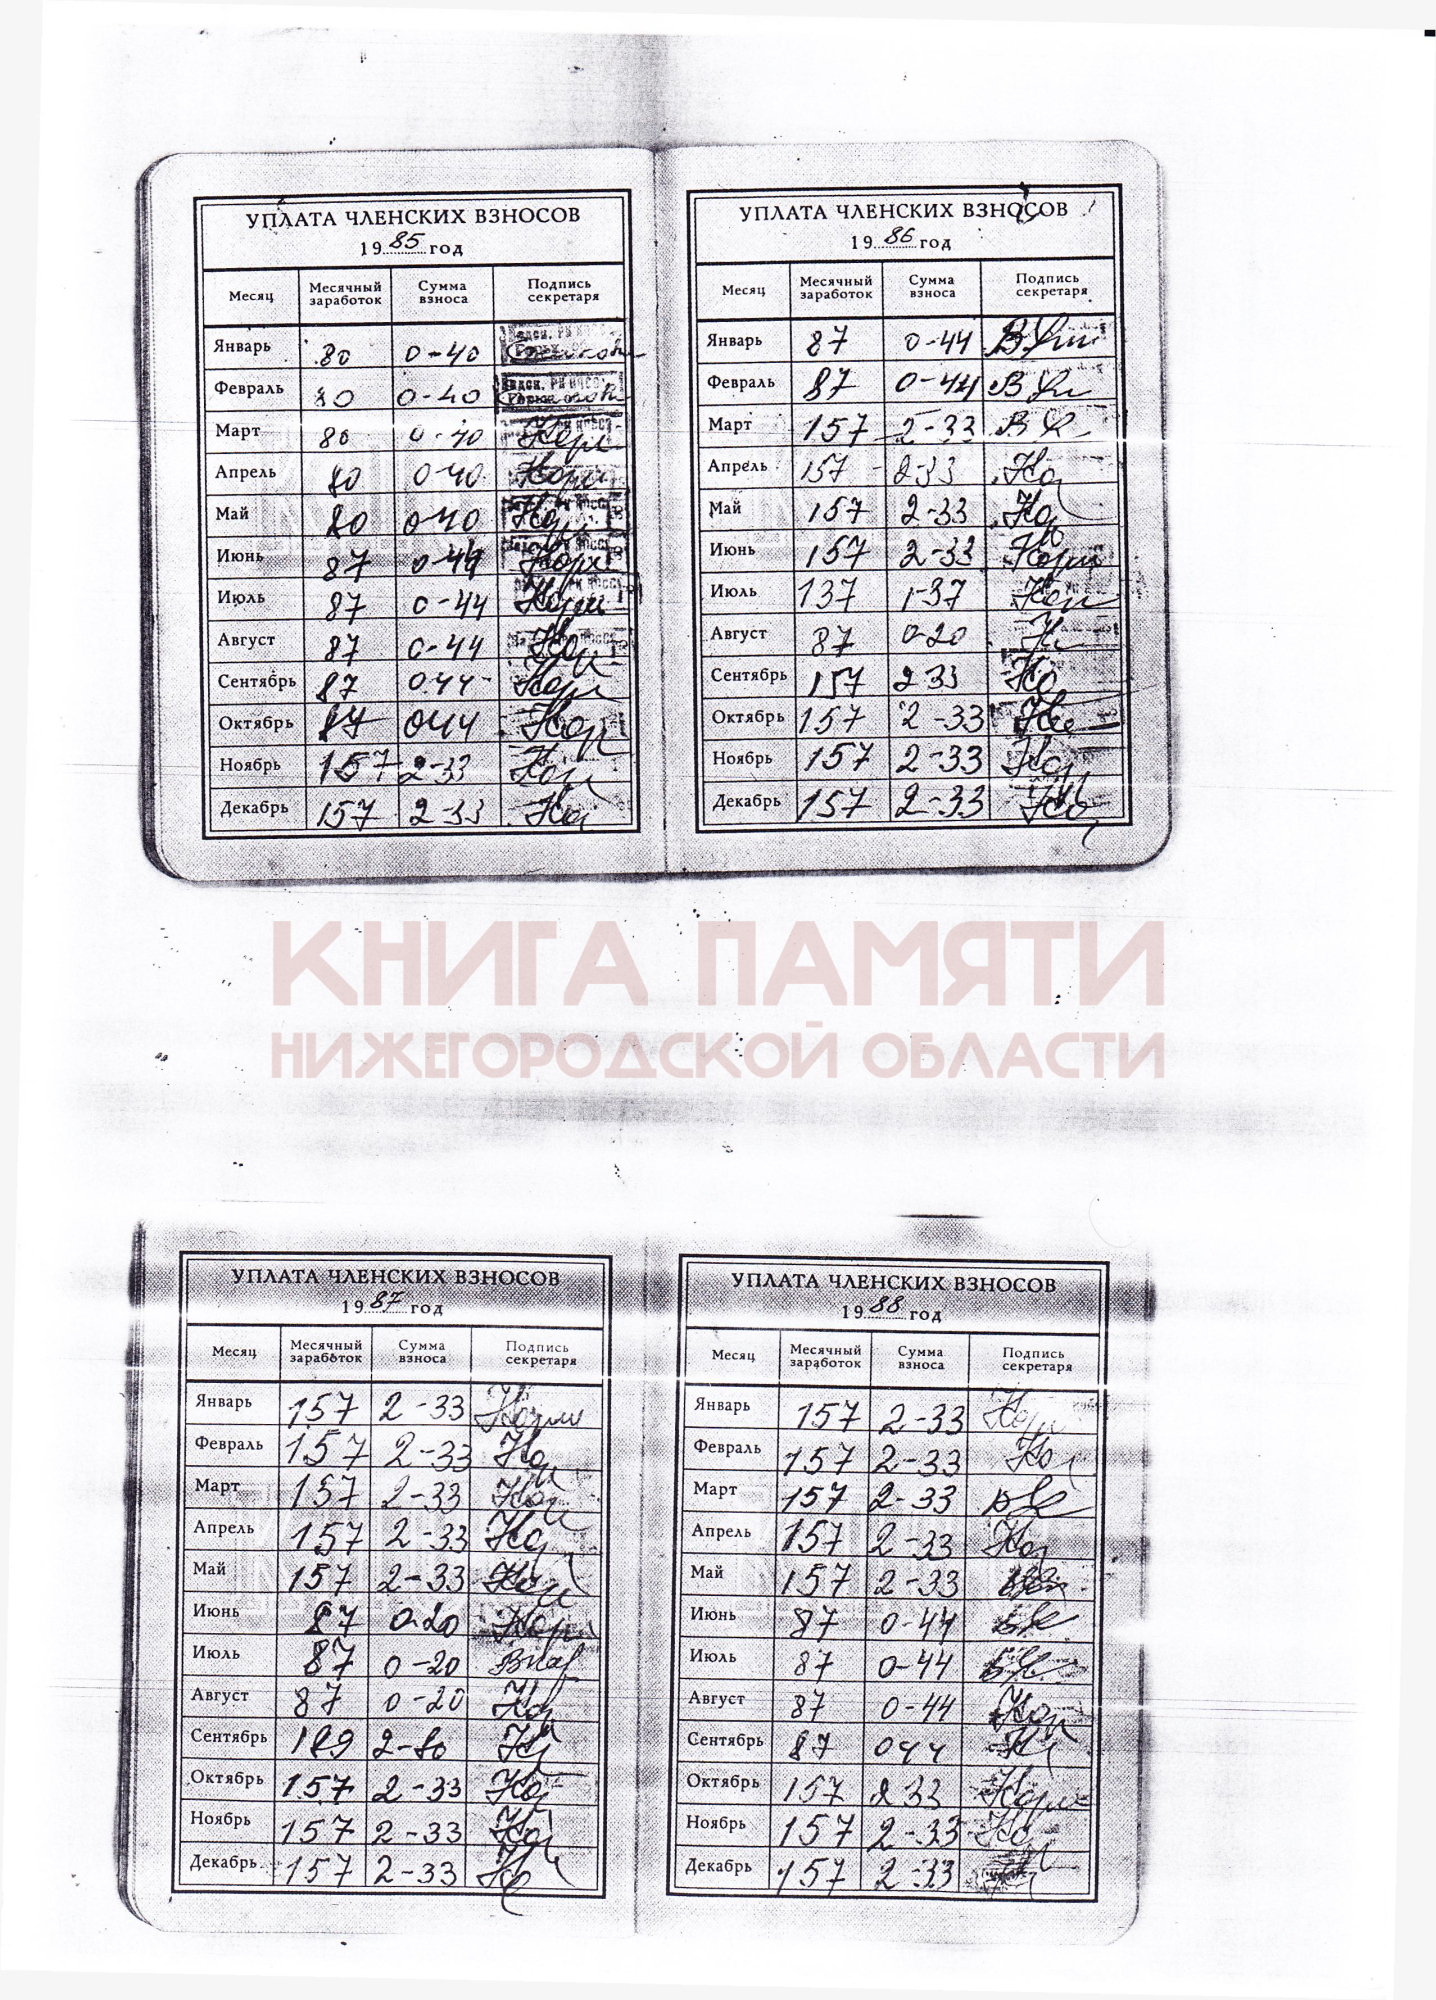 УПЛАТА ЧЛЕНСКИХ ВЗНОСОВ
1985 год
Месяц Месячный заработок Сумма взноса Подпись секретаря
Январь 80 0-40
Февраль 80 0-40
Март 80 0-40
Апрель 80 0-40
Май 80 0-40
Июнь 87 0-44
Июль 87 0-44
Август 87 0-44
Сентябрь 87 0-44
Октябрь 87 0-44
Ноябрь 157 2-33
Декабрь 157 2-33
УПЛАТА ЧЛЕНСКИХ ВЗНОСОВ
1986 год
Месяц Месячный заработок Сумма взноса Подпись секретаря
Январь 87 0-44
Февраль 87 0-44
Март 157 2-33
Апрель 157 2-33
Май 157 2-33
Июнь 157 2-33
Июль 137 1-37
Август 87 0-20
Сентябрь 157 2 33
Октябрь 157 2-33
Ноябрь 157 2-33
Декабрь 157 2-33
КНИГА ПАМЯТИ
НИЖЕГОРОДСКОЙ ОБЛАСТИ
УПЛАТА ЧЛЕНСКИХ ВЗНОСОВ
1987 год
Месяц Месячный заработок Сумма взноса Подпись секретаря
Январь 157 2-33
Февраль 157 2-33
Март 157 2-33
Апрель 157 2-33
Май 157 2-33
Июнь 87 0-20
Июль 87 0-20
Август 87 0-20
Сентябрь 2-80
Октябрь 157 2-33
Ноябрь 157 2-33
Декабрь 157 2-33
УПЛАТА ЧЛЕНСКИХ ВЗНОСОВ
1988 год
Месяц Месячный заработок Сумма взноса Подпись секретаря
Январь 157 2-33
Февраль 157 2-33
Март 157 2-33
Апрель 157 2-33
Май 157 2-33
Июнь 87 0-44
Июль 87 0-44
Август 87 0-44
Сентябрь 87 0 44
Октябрь 157 2 33
Ноябрь 157 2-33
Декабрь 157 2-33